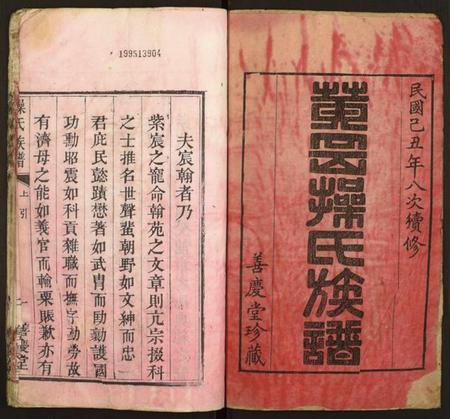 民國己丑年八次續修
萱昷操氏族譜
善慶堂珍藏
199513904
夫宸翰者乃
紫宸之寵命翰苑之文章則亢宗掇科
之士推名世聲蜚朝野如文紳而忠
君庶民懿蹟懋著如武冑而勛勷護國
功勳昭震如科貢雜職而撫字劬勞故
有濟母之能如義官而輸粟賑歉亦有
操氏族譜
上引
一
善慶堂